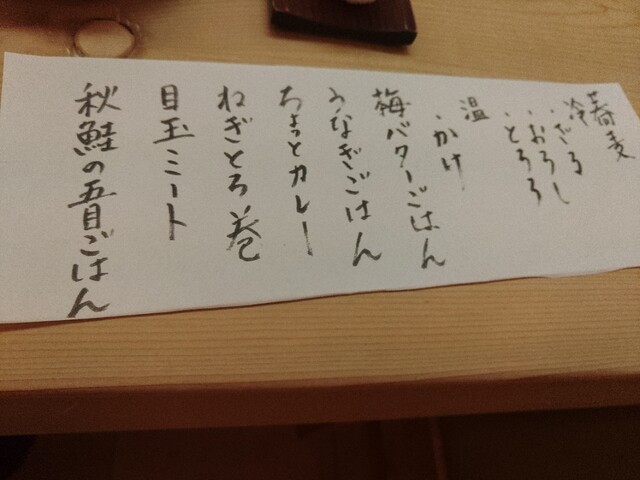 蕎麦
冷
・ざる
・おろし
・とろろ
温
・かけ
梅バターごはん
うなぎごはん
ちょっとカレー
ねぎとろ巻
目玉ミート
秋鮭の五目ごはん